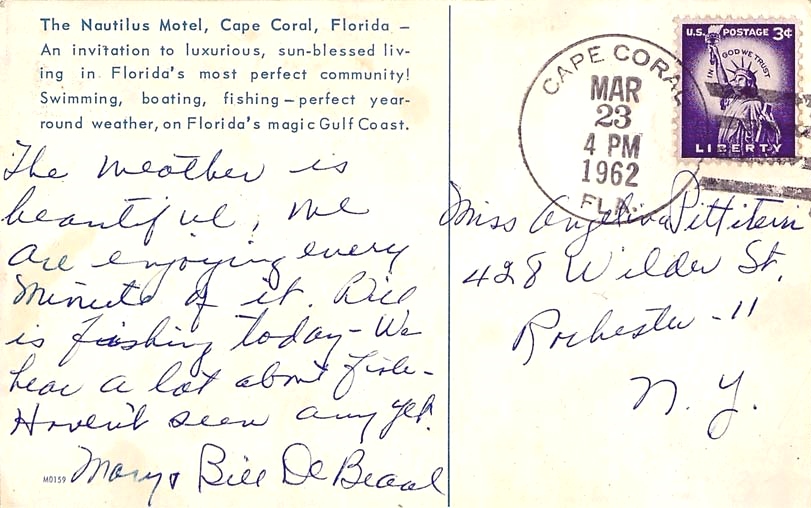 The Nautilus Motel, Cape Coral, Florida –
An invitation to luxurious, sun-blessed liv-
ing in Florida's most perfect community!
Swimming, boating, fishing – perfect year-
round weather, on Florida's magic Gulf Coast.
The weather is
beautiful, we
are enjoying every
minute of it. Bill
is fishing today – We
hear a lot about fish –
Haven't seen any yet.
Mary & Bill De
M0159
CAPE CORAL
MAR
23
4 PM
1962
FLA.
U.S. POSTAGE 3¢
IN GOD WE TRUST
LIBERTY
Miss Angelina
428 Wilder St.
Rochester - 11
N. Y.